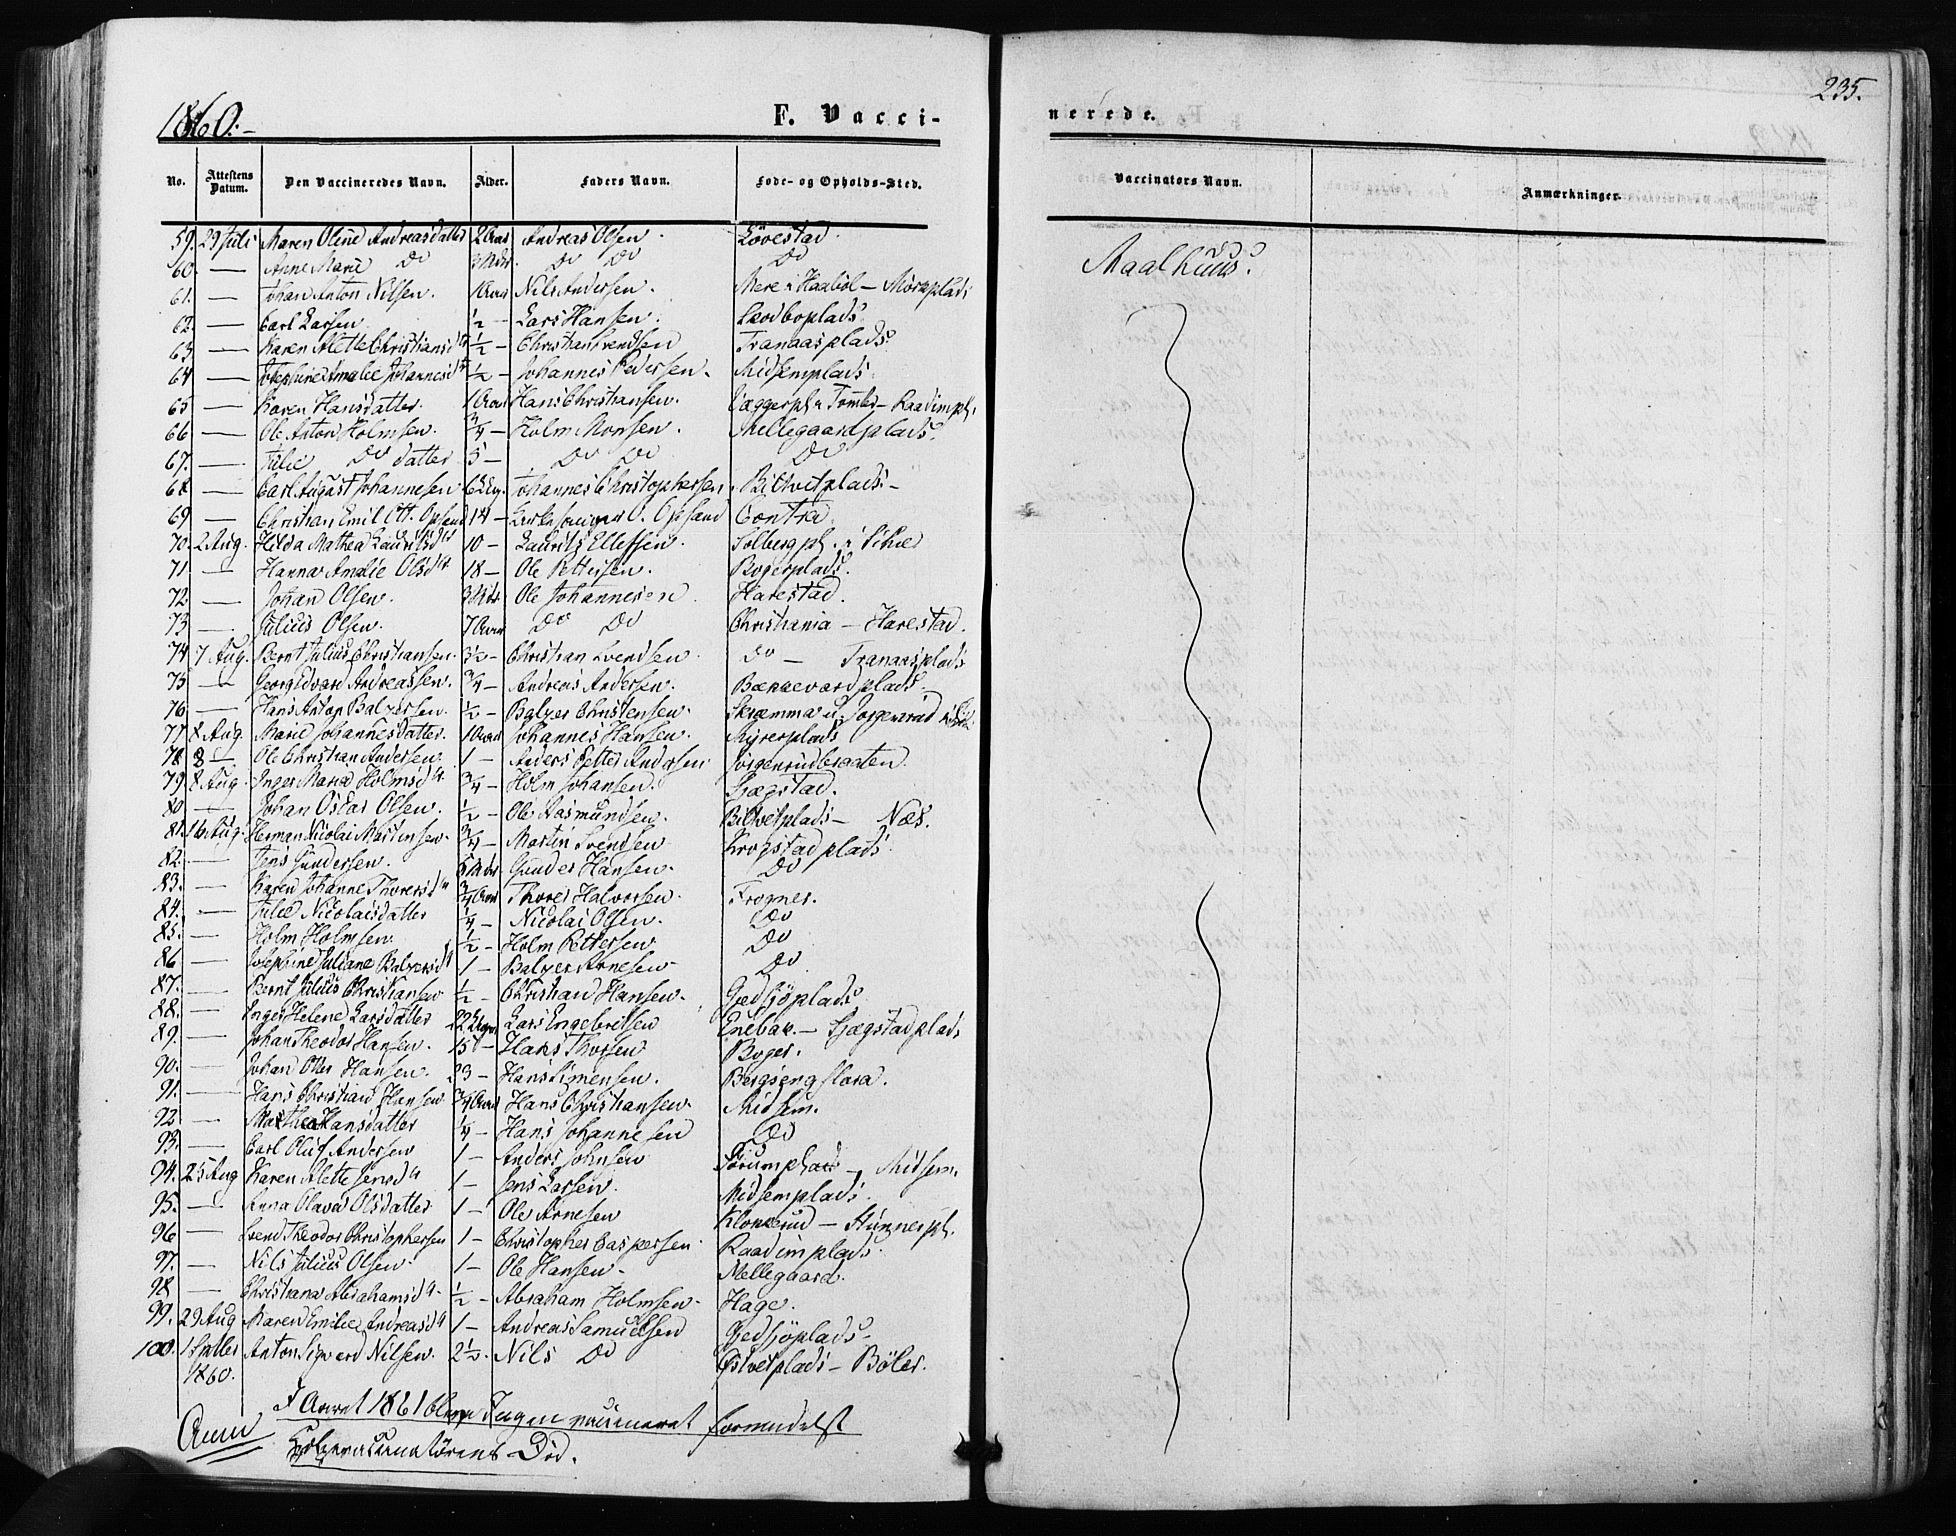 1860.-
F. Vacci-
No. Attestens Datum. Den Vaccineredes Navn. Alder. Faders Navn. Føde- og Opholds-Sted.
59. 29 Juli Maren Oline Andreasdatter 2 Aar Andreas Olsen. Løvestad.
60. — Anne Marie Do 3 Mdr. Do Do Do
61. — Johan Anton Nilsen. 1 Aar Nils Andersen. Haabøl —
62. — Carl Larsen ½ — Lars Hansen.
63 — Karen Alette Christiansdtr ½ — Christian Svendsen Tranaasplads
64 — Josephine Amalie Johannesdtr ½ — Johannes Pedersen. Midsemplads.
65 — Karen Hansdatter. 1 Aar Hans Christiansen. — Raadimpl.
66 — Ole Anton Holmsen. ¾ — Holm Monsen. Mellegaardplads.
67. — Julie Do datter 5 — Do Do Do
68 — Carl August Johannesen 6 Johannes Christophersen. Biltvetplads. —
69 — Christian Emil Ott. Opsand 14 — Kirkesanger O. Opsand Contra.
70. 2 Aug. Hilda Mathea Lauritsdtr 10 — Laurits Ellefsen. Solbergpl. i
71 — Hanna Amalie Olsdtr 18 — Ole Pettersen. Bogerplads.
72 — Johan Olsen. 3 Mdr Ole Johannesen. Harestad.
73 — Julius Olsen. 7 Aar Do Do Christiania — Harestad.
74 7 Aug. Bernt Julius Christiansen. 3½ — Christian Svendsen Do — Tranaasplads
75 — Georg Edvard Andreassen. ¾ — Andreas Andersen. Bakkevardplads.
76 — Hans Anton Balzersen. ½ — Balzer Christensen. Skræmma u. Jorgenrud
77 8 Aug. Marie Johannesdatter. 1 Aar Johannes Hansen. Myrerplads
78 8 — Ole Christian Andersen. 1 — Anders Petter Andersen Jorgenrudbraaten.
79. 8 Aug. Inger Maria Holmsdtr ¾ — Holm Johansen. Sjægstad.
80 — Johan Oskar Olsen. ½ — Ole Rasmundsen. Biltvetplads — Næs.
81. 16 Aug. Herman Nicolai Martinsen. ¾ — Martin Svendsen Krogstadplads.
82. — Jens Gundersen. 5 Mdr Gunder Hansen. Do
83. — Karen Johanne Thoresdtr ¾ Aar Thorer Halvorsen. Frogner.
84. — Julie Nicolaisdatter ¼ — Nicolai Olsen. Do
85. — Holm Holmsen. ½ — Holm Pettersen Do
86 — Josephine Juliane Balzersdtr 1 — Balzer Arnesen Do
87. — Bernt Julius Christiansen ½ — Christian Hansen. Gjedsjøplads
88. — Inger Helene Larsdatter 22 Lars Engebretsen Enebak. — Sjægstadplads
89. — Johan Theodor Hansen. 15 — Hans Thorsen Boger.
90. — Johan Otter Hansen. 23 — Hans Simensen. Bergsengflora.
91. — Hans Christian Hansen ¾ Aar Hans Christiansen Midsem.
92 — Mathea Hansdatter ¼ — Hans Johannesen Do
93. — Carl Oluf Andersen 1 — Anders Johnsen Sørumplads — Midsem.
94. 25 Aug Karen Alette Jensdtr 1 — Jens Larsen. Midsemplads.
95. — Anna Olava Olsdatter 1 — Ole Arnesen Klokkerud — Hunnerpl.
96 — Svend Theodor Christophersen 1 — Christopher Caspersen. Raadimplads.
97. — Nils Julius Olsen. 1 — Ole Hansen. Mellegaard.
98 — Christiana Abrahamsdtr ½ — Abraham Holmsen. Hage.
99. 29 Aug Karen Emilie Andreasdtr 1 — Andreas Samuelsen Gjedsjøplads.
100. 1 Septbr 1860. Anton Sigvard Nilsen. 2½. Nils Do Østvetplads — Bøler.
Anm I Aaret 1861 blev Ingen vaccineret formedelst
Hjelpevaccinatørens Død.
235.
nerede.
Vaccinators Navn. Anmærkninger.
Aalhuus.